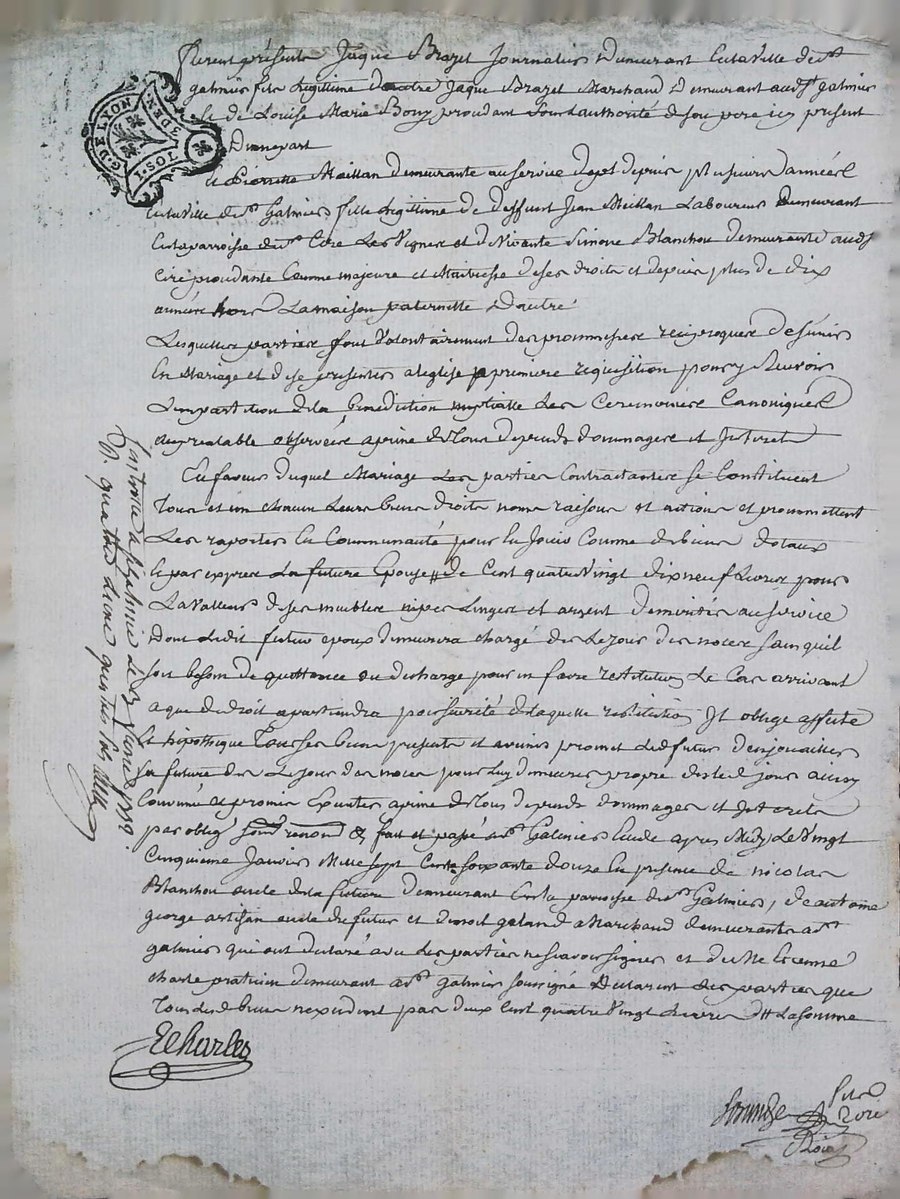 furent présents Jaque Brazet Journalier Demeurant En la Ville de St
galmier fils Legittime Jaque Brazet Marchand Demeurant aud St galmier
et de Louise Marie Bory procedant Sous L'authorité de son pere icy present
D'une part
Et Pierrette Meillan demeurante au service depuis plusieurs années
En la Ville de St Galmier fille Legittime de deffunt Jean Meillan Laboureur demeurant
En la paroisse de St Cire Les Vignes et de Vivante Simone Blanchon demeurante aud St
Cire procedante Comme majeure et Maitresse de ses droits et depuis plus de dix
années hors La maison paternelle D'autre
Lesquelles parties font Volontairement des promesses reciproques de s'unir
En Mariage et de se presenter a l'eglise a premiere requisition pour y Recevoir
L'impartition de la benediction nuptialle Les Ceremonies Canoniques
au prealable observées a peine de Tous depends dommages et Interets
En faveur duquel Mariage Les parties Contractantes se Constituent
Tous et un chacun Leurs biens droits noms raisons et actions et promettent
Les raporter En Communauté pour En Jouir Comme de biens dotaux
Et par exprès La future Epouse de Cent quatre Vingt dix neuf Livres pour
La Valleur de ses meubles nipes Linges et argent au service
Dont Ledit futur epoux demeurera chargé des Le jour des noces sans qu'il
soit besoin de quittance ou decharge pour En faire restitution Le Cas arrivant
a qui de droit apartiendra pour sureté de laquelle restitution Il oblige affecte
Et hipotheque Tous ses biens presents et avenir promet Led futur d'enjouailler
sa future des Le jour des noces pour Luy demeurer propre dud jour ainsy
Convenu et promis Executer a peine de Tous depends dommages et Interets
par oblig soum renon & fait et passé a St Galmier Etude apres Midy Le Vingt
Cinquieme Janvier Mille sept Cents soixante douze En presence de nicolas
Blanchon oncle de la future demeurant En la paroisse de St Galmier, de antoine
george artisan oncle du futur et Benoit galand Marchand demeurants a St
galmier qui ont declaré avec Les parties ne scavoir signer et de Me Etienne
charle praticien demeurant a St galmier soussigné Declarent Les parties que
Tous Leurs biens n'exedent pas deux Cent quatre Vingt Livres La somme
ECharles
G. DE LYON
1. SOL
3 DEN